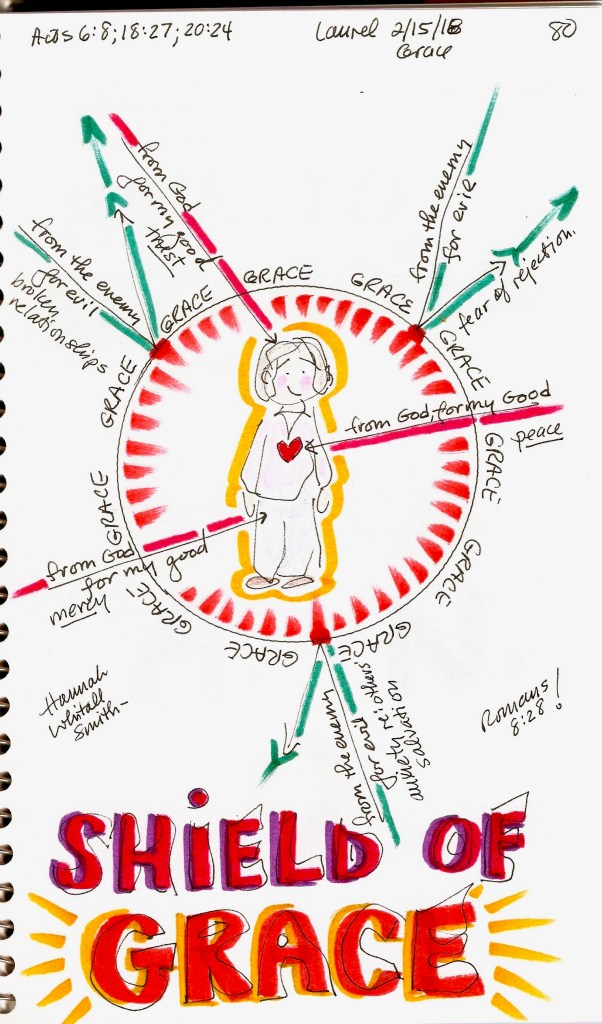 Acts 6:8; 18:27; 20:24
Laurel 2/15/16
Grace
80
from God
for my good
from the enemy
for evil
broken
relationships
from the enemy
for evil
fear of rejection.
GRACE
GRACE
GRACE
GRACE
GRACE
GRACE
GRACE
GRACE
GRACE
GRACE
GRACE
from God, for my Good
peace
from God
for my good
mercy
from the enemy
for evil
anxiety re: others'
salvation
Hannah
Whitall
Smith-
Romans
8:28!
SHiELD OF
GRACE